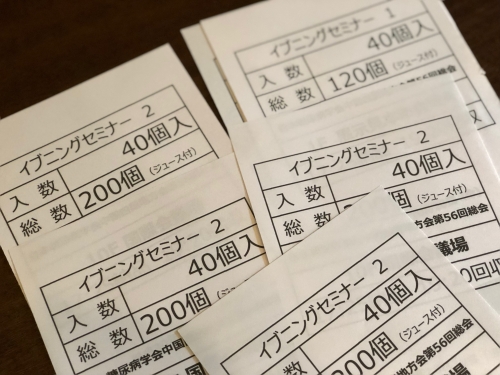 イブニングセミナー 2
入数 40個入
総数 200個 (ジュース付)
イブニングセミナー 1
入数 40個入
総数 120個 (ジュース付)
第56回総会
イブニングセミナー 2
入数 40個入
総数 (ジュース付)
方会第56回総会
議場
イブニングセミナー 2
入数 40個入
総数 200個 (ジュース付)
糖尿病学会中国
イブニングセミナー 2
入数 40個入
総数 200個 (ジュース付)
地方会第56回総会